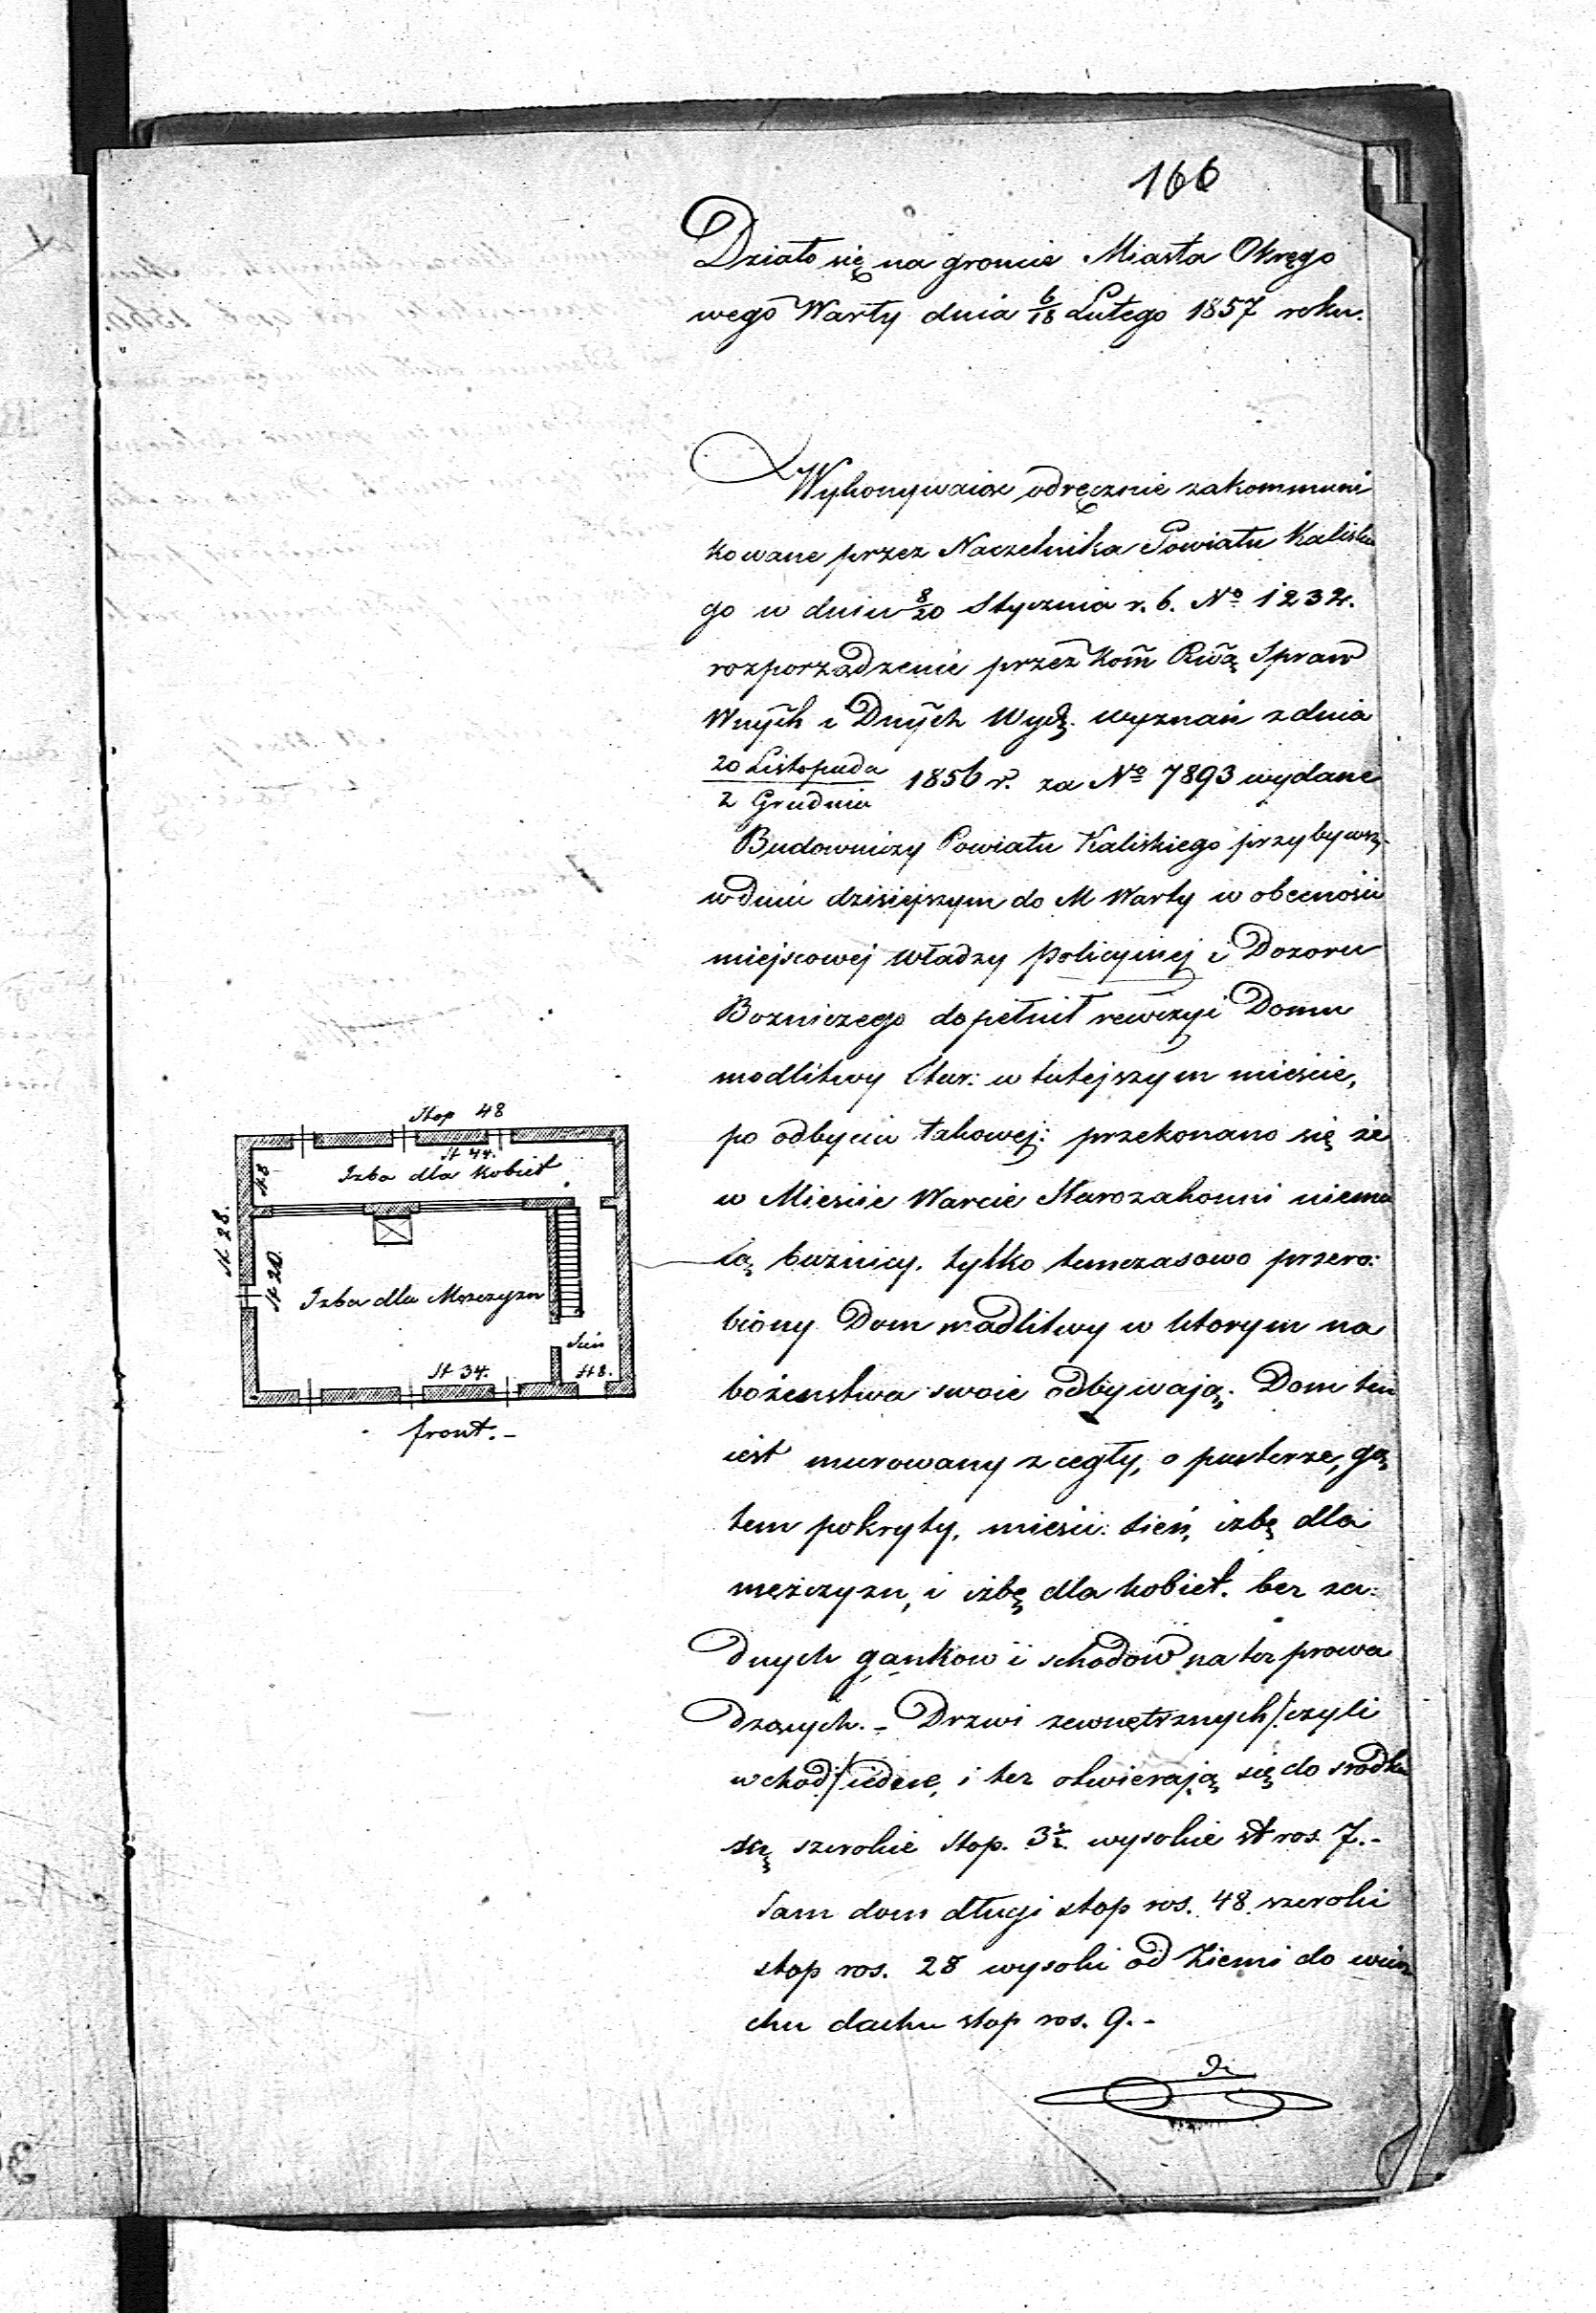 166
Działo się na groncie Miasta Okręgo
wego Warty dnia 6/18 Lutego 1857 roku.
Wykonywaiąc odręcznie zakommuni
kowane przez Naczelnika Powiatu Kaliskie
go w dniu 8/20 Stycznia r. b. No 1232.
rozporządzenie przez Kom̃ Rwą Spraw
Wnych i Dnych Wydz. wyznań z dnia
20 Listopada / 2 Grudnia 1856 r. za No 7893 wydane
Budowniczy Powiatu Kaliskiego przybywszy
w dniu dzisiejszym do M Warty w obecności
miejscowej władzy Policyinej i Dozoru
Bozniczego dopełnił rewizyi Domu
modlitwy Star: w tutejszym mieście,
po odbyciu takowej: przekonano się że
w Mieście Warcie Starozakonni niema
ią buznicy, tylko tymczasowo przero:
biony Dom modlitwy w ktorym na
bożenstwa swoie odbywają; Dom ten
iest murowany z cegły, o parterze, gą
tem pokryty, mieści: sień, izbę dla
mężczyzn, i izbę dla kobiet. bez ża:
dnych gankow i schodow na tez prowa
dzących. - Drzwi zewnętrznych /: czyli
wchod :/ iedne, i tez otwierają się do srodka
są szerokie stop. 3 1/2 wysokie st ros 7.-
Sam dom długi stop ros. 48 szeroki
stop ros. 28 wysoki od Ziemi do wierz
chu dachu stop ros. 9.-
Stop 48
St 44.
Izba dla kobiet
St 8
St 28.
St 20.
Izba dla Męzczyzn
Sień
St 34.
St 8.
front.-